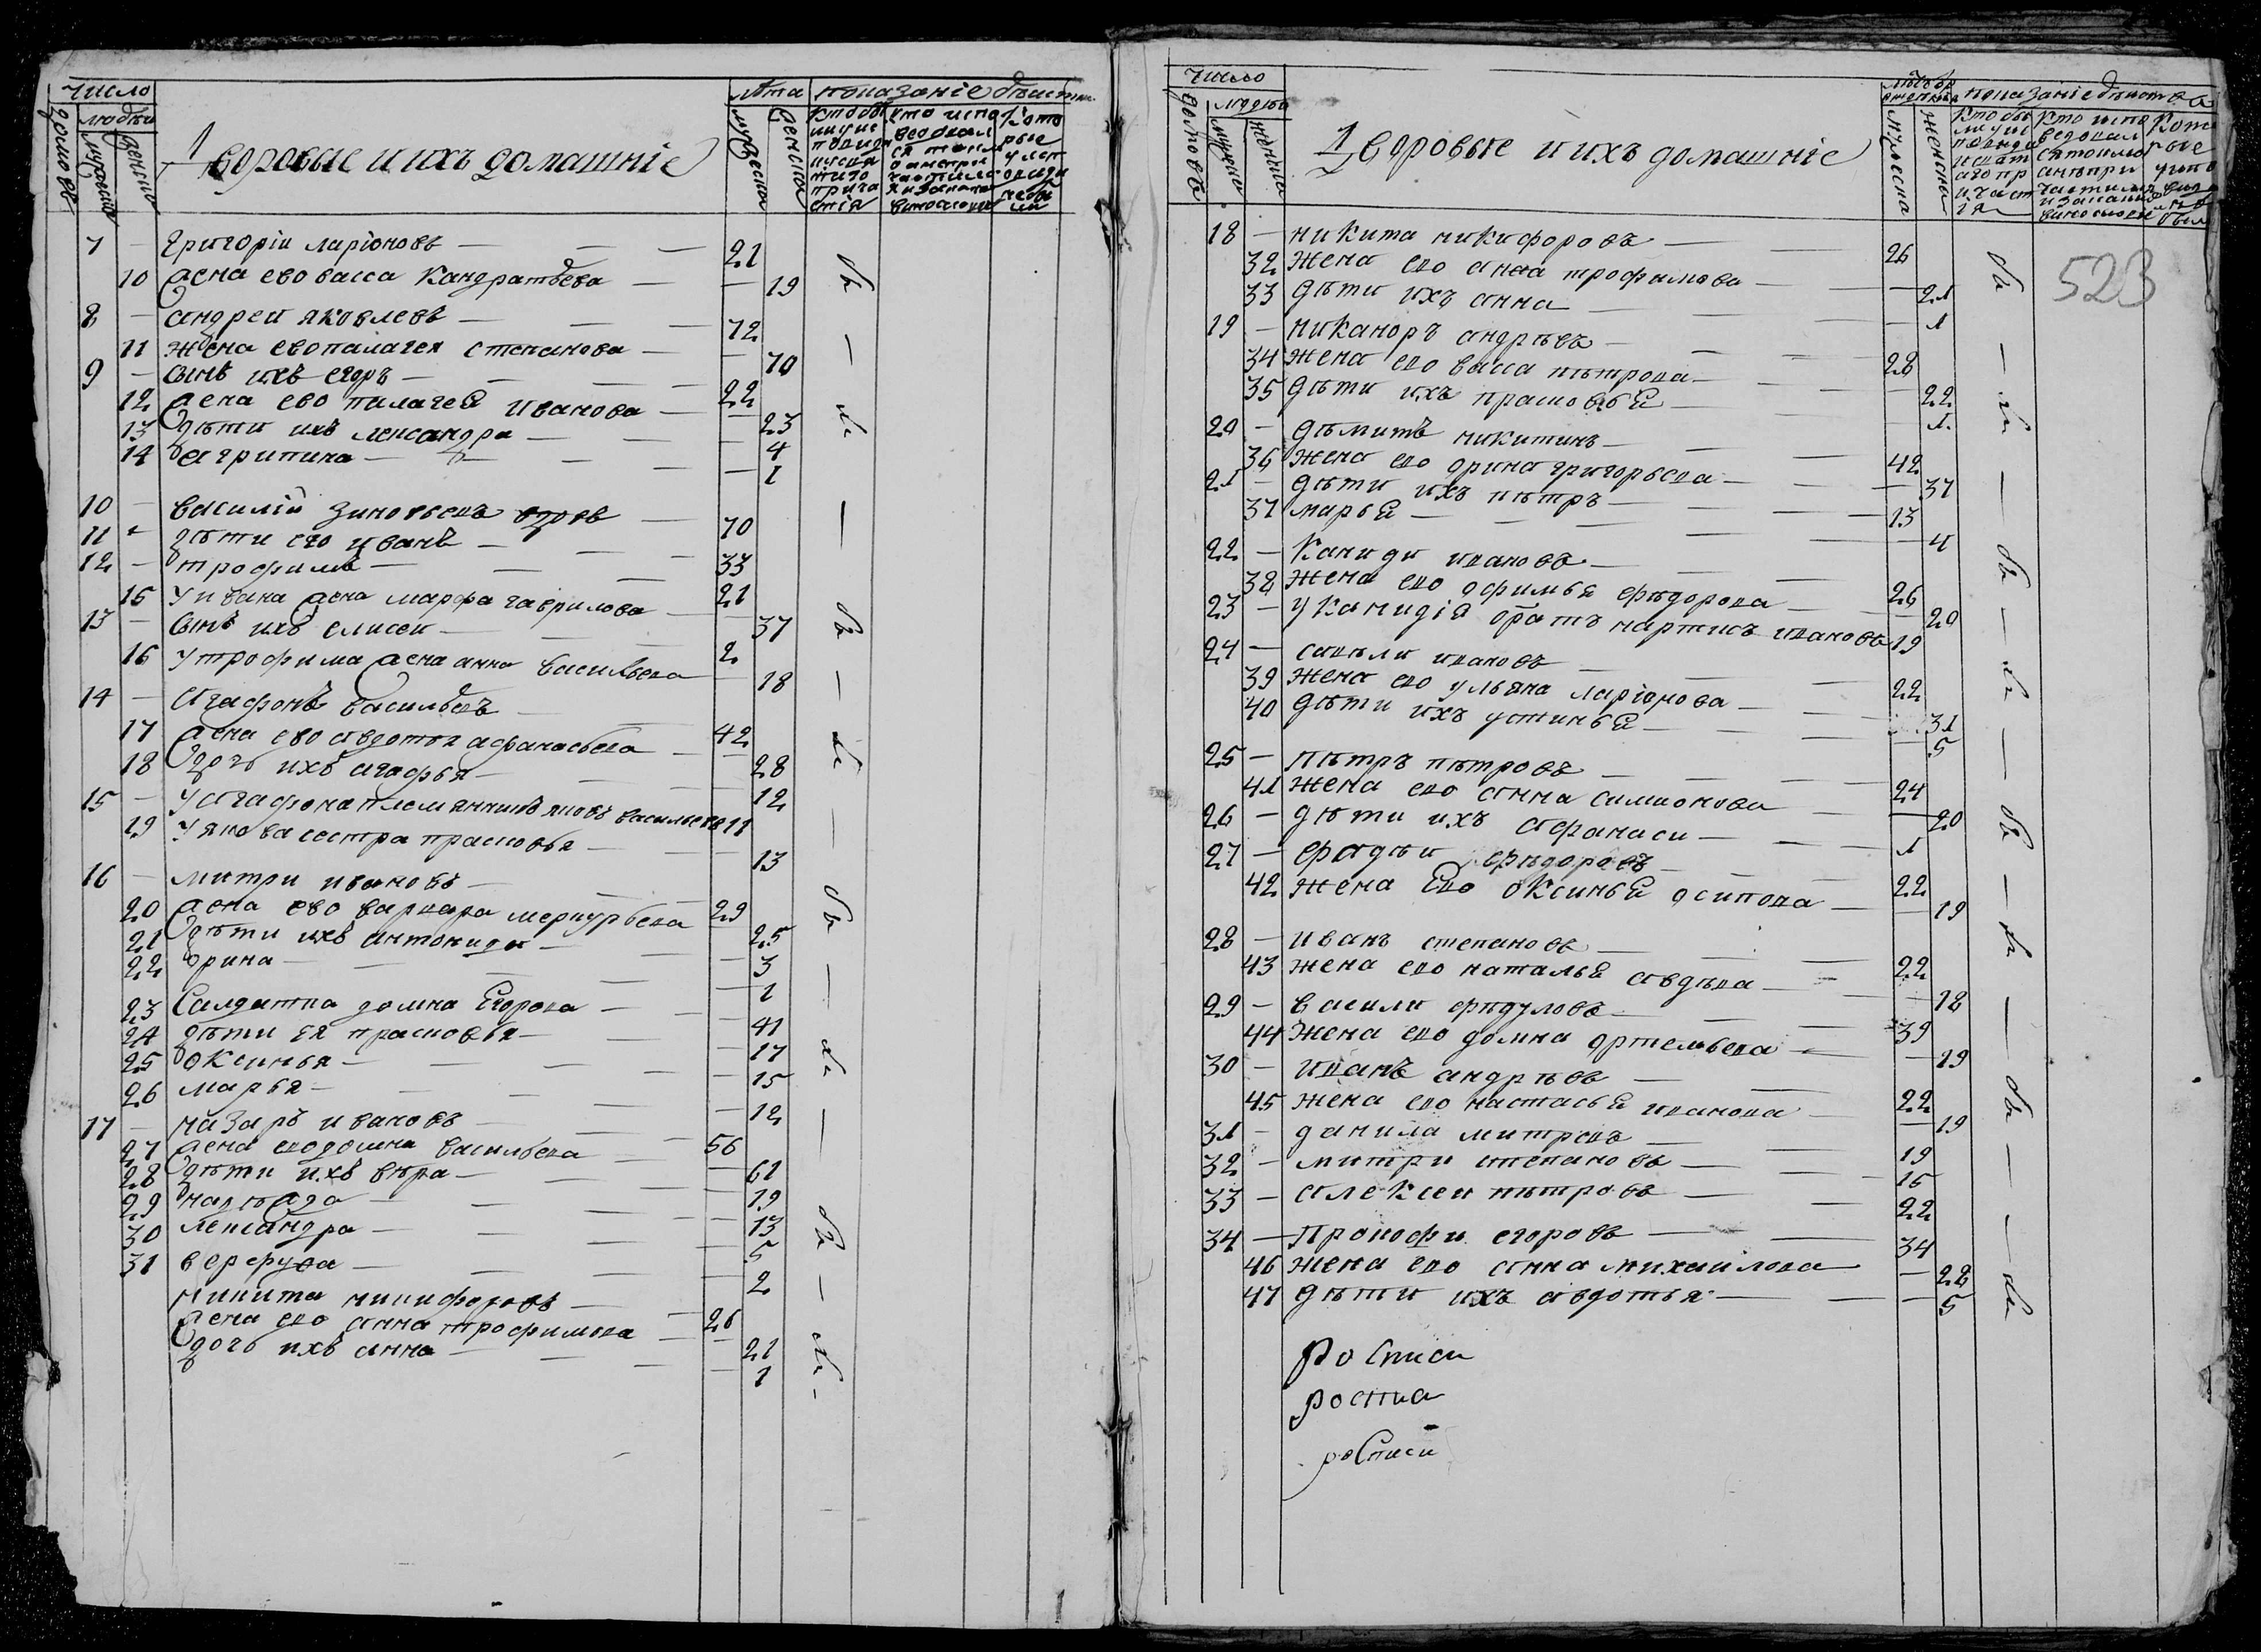 число
людѣи
домовъ
мужеска
женска
Дворовые и ихъ домашніе
лѣта
показаніе дѣиства
мужеска
женска
7 — григоріи ларіоновъ — 21
10 жена ево васса кандратьева — 19
8 — андреи яковлевъ — 72
11 жена ево палагея степанова — 70
9 — сынъ ихъ егоръ — 22
12 жена ево пилагея иванова — 23
13 дѣти ихъ лександра — 4
14 агрипина — 1
10 — василіи зиновьевъ вдовъ — 70
11 — дѣти его иванъ — 33
12 — трофимъ — 21
15 у ивана жена марфа гаврилова — 37
13 — сынъ ихъ елисеи — 2
16 у трофима жена анна васильева — 18
14 — агафонъ васильевъ — 42
17 жена ево авдотья афанасьева — 28
18 дочь ихъ агафья — 12
15 — у агафона племянникъ яковъ васильевъ 11
19 у якова сестра прасковья — 13
16 — митри ивановъ — 29
20 жена ево варвара меркурьева — 25
21 дѣти ихъ антонида — 3
22 орина — 1
23 салдатка домна егорова — 41
24 дѣти ея прасковья — 17
25 оксинья — 15
26 марья — 12
17 — назаръ ивановъ — 56
27 жена ево домна васильева — 61
28 дѣти ихъ вѣра — 19
29 надѣжда — 13
30 лександра — 5
31 — 2
никита никифоровъ — 26
жена ево анна трофимова — 21
дочь ихъ анна — 1
число
людѣи
домовъ
мужеска
женска
Дворовые и ихъ домашніе
показаніе дѣиства
мужеска
женска
523
18 — никита никифоровъ — 26
32 жена ево анна трофимова — 21
33 дѣти ихъ анна — 1
19 — никаноръ андрѣевъ — 28
34 жена ево васса пѣтрова — 22
35 дѣти ихъ прасковья — 1
20 — дѣмитъ никитинъ — 42
36 жена ево орина григорьева — 37
21 — дѣти ихъ пѣтръ — 13
37 марья — 4
22 — каниди ивановъ — 26
38 жена ево офимья фѣдорова — 20
23 — у канидія братъ нартисъ ивановъ 19
24 — савѣли ивановъ — 22
39 жена ево ульяна ларіонова — 31
40 дѣти ихъ устинья — 5
25 — пѣтръ пѣтровъ — 24
41 жена ево анна симионова — 20
26 — дѣти ихъ афанаси — 1
27 — фадѣи фѣдоровъ — 22
42 жена ево оксинья осипова — 19
28 — иванъ степановъ — 22
43 жена ево наталья авдѣева — 18
29 — васили фѣдуловъ — 39
44 жена ево домна ортемьева — 19
30 — иванъ андрѣевъ — 22
45 жена ево настасья иванова — 19
31 — данила митревъ — 19
32 — митри степановъ — 15
33 — алексеи пѣтровъ — 22
34 — прокофи егоровъ — 34
46 жена ево анна михаилова — 28
47 дѣти ихъ авдотья — 5
росписи
роспис
росписи